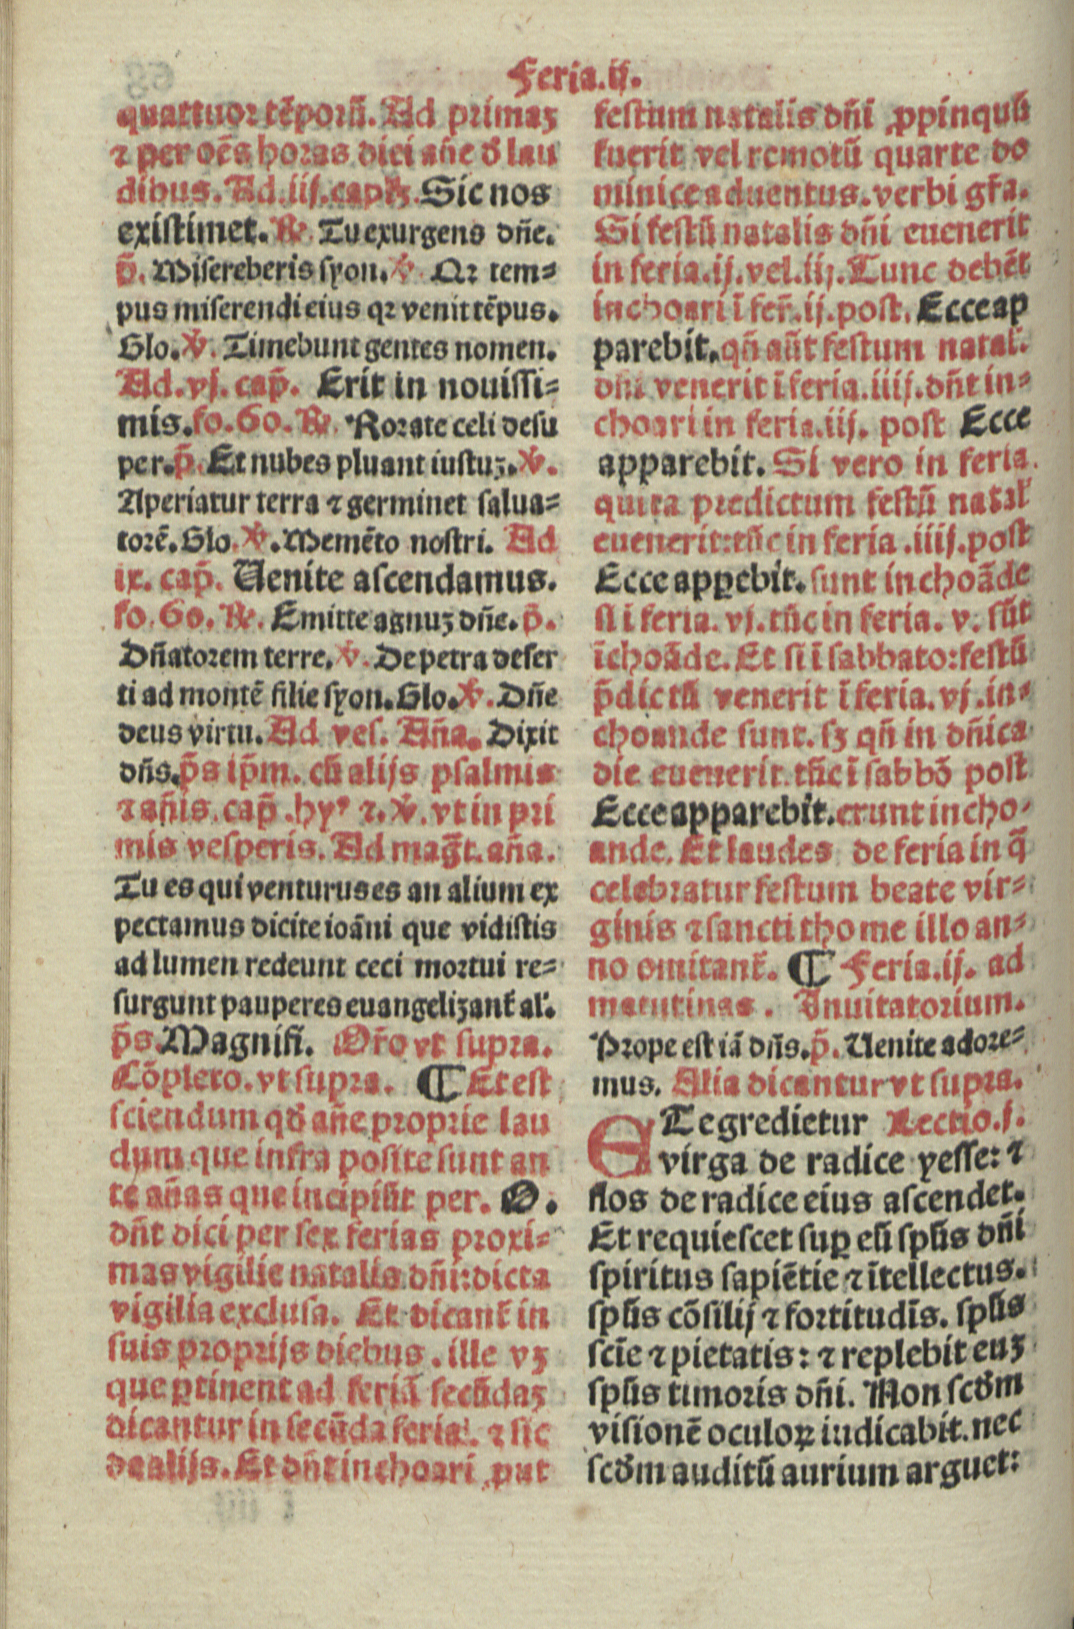 Feria.ij.
quattuor tẽporũ. Ad primaʒ
⁊ per oẽs horas dici añe ð lau
dibus. Ad.iij.capꝉm. Sic nos
existimet. ℟. Tu exurgens dñe.
p̃. Misereberis syon. ℣. Qꝛ tem-
pus miserendi eius qꝛ venit tẽpus.
Glo. ℣. Timebunt gentes nomen.
Ad.vj. cap̃. Erit in nouissi-
mis. fo.60. ℟. Rorate celi desu
per. p̃. Et nubes pluant iustuʒ. ℣.
Aperiatur terra ⁊ germinet salua-
torẽ. Glo. ℣. Memẽto nostri. Ad
ix. cap̃. Uenite ascendamus.
fo.60. ℟. Emitte agnuʒ dñe. p̃.
Dñatorem terre. ℣. De petra deser
ti ad montẽ filie syon. Glo. ℣. Dñe
deus virtu. Ad ves. Aña. Dixit
dñs. p̃s ip̃m. cũ alijs psalmis
⁊ añis. cap̃. hyꝰ ⁊. ℣. vt in pri
mis vesperis. Ad mag̃t. aña.
Tu es qui venturus es an alium ex
pectamus dicite ioãni que vidistis
ad lumen redeunt ceci mortui re-
surgunt pauperes euangelizant̃ al'.
p̃s Magnifi. Or̃o vt supra.
Cõpleto. vt supra. ¶ Et est
sciendum qð añe proprie lau
dum que infra posite sunt an
te añas que incipiũt per. O.
dñt dici per sex ferias proxi-
mas vigilie natalis dñi: dicta
vigilia exclusa. Et dicant̃ in
suis proprijs diebus. ille vʒ
que ꝑtinent ad feriã secũdaʒ
dicantur in secũda feria. ⁊ sic
de alijs. Et dñt inchoari ꝓut
festum natalis dñi ꝓpinquũ
fuerit vel remotũ quarte do
minice aduentus. verbi gr̃a.
Si festũ natalis dñi euenerit
in feria.ij.vel.iij. Tunc debẽt
inchoari ĩ fer̃.ij.post. Ecce ap
parebit. qñ aũt festum natal'.
dñi venerit ĩ feria.iiij.dñt in-
choari in feria.iij. post Ecce
apparebit. Si vero in feria.
quita predictum festũ natal'
euenerit: tũc in feria.iiij.post
Ecce apꝑebit. sunt inchoãde
si ĩ feria. vj. tũc in feria. v. sũt
ĩchoãde. Et si ĩ sabbato: festũ
p̃dictũ venerit ĩ feria. vj. in-
choande sunt. sʒ qñ in dñica
die euenerit. tũc ĩ sabbõ post
Ecce apparebit. erunt incho-
ande. Et laudes de feria in q̃
celebratur festum beate vir-
ginis ⁊ sancti thome illo an-
no omitant̃. ¶ Feria.ij. ad
matutinas. Inuitatorium.
Prope est iã dñs. p̃. Uenite adore-
mus. Alia dicantur vt supra.
ETegredietur Lectio.j.
virga de radice yesse: ⁊
flos de radice eius ascendet.
Et requiescet suꝑ eũ spũs dñi
spiritus sapiẽtie ⁊ ĩtellectus.
spũs cõsilij ⁊ fortitudĩs. spũs
scĩe ⁊ pietatis: ⁊ replebit euʒ
spũs timoris dñi. Non scðm
visionẽ oculoꝝ iudicabit. nec
scðm auditũ aurium arguet: